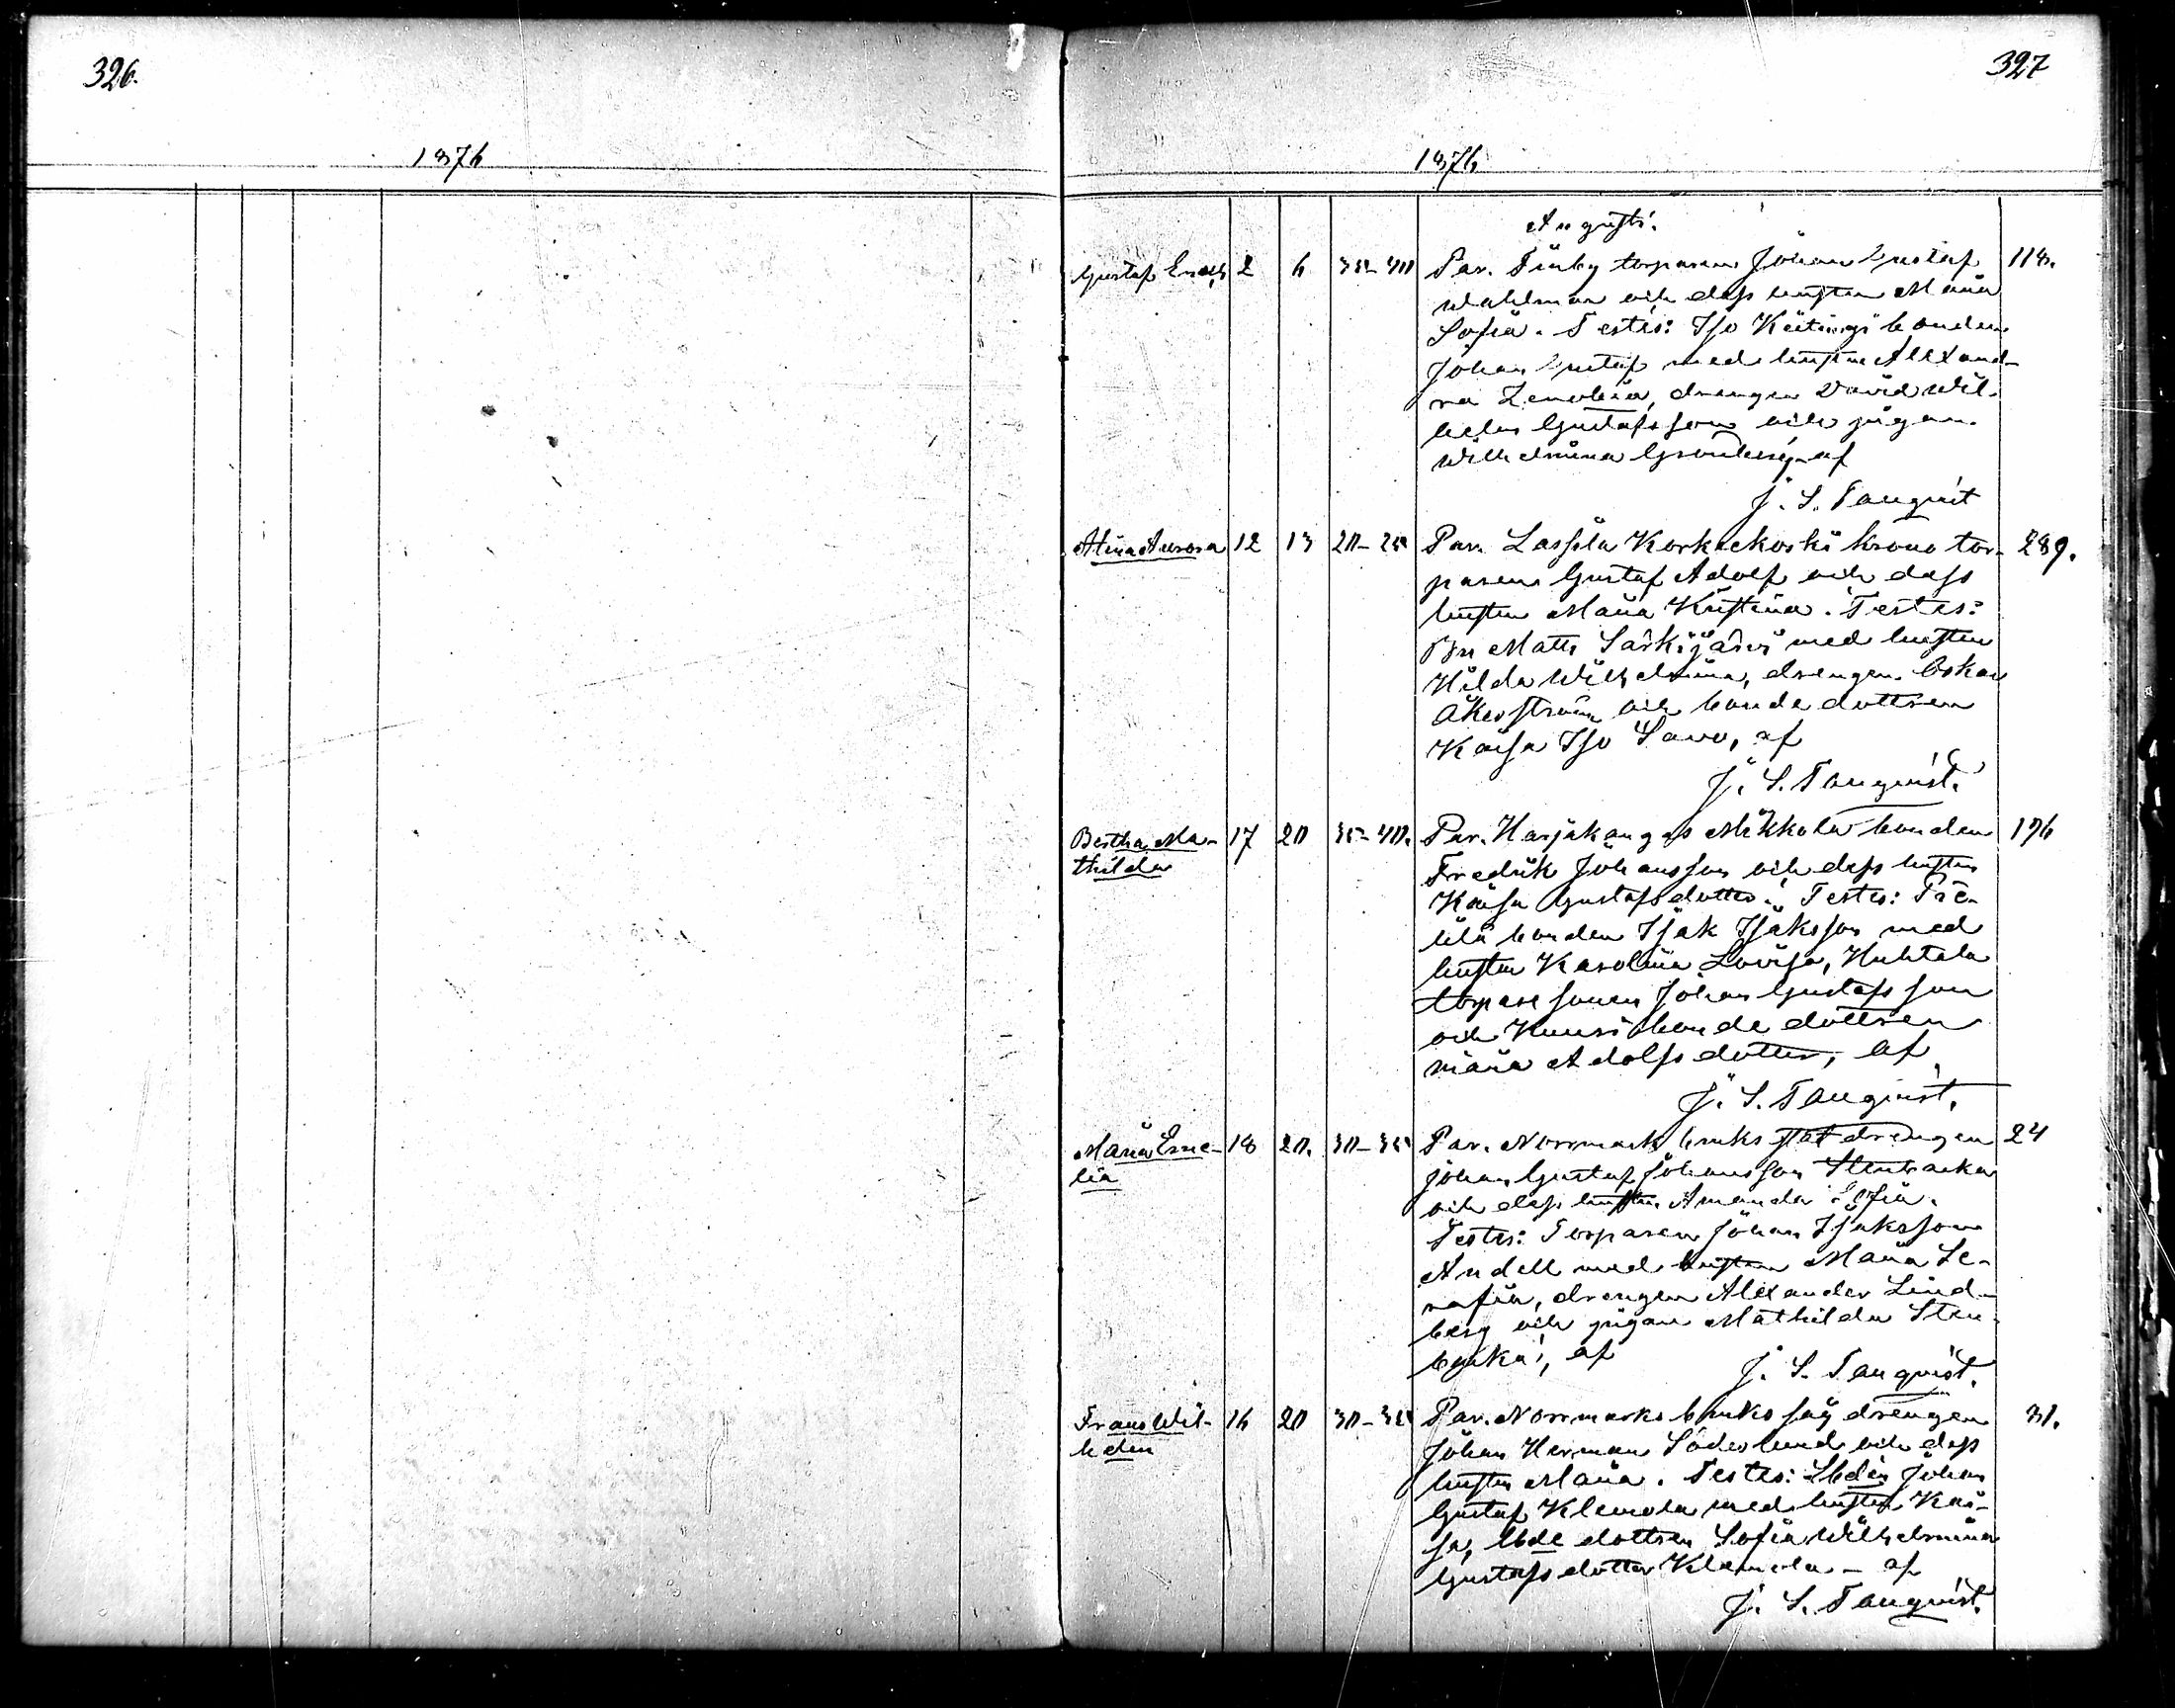 326.
1876
327
1876
Augusti.
Gustaf Enoch 2 6 35-40 Par. Finby torparen Johan Gustaf 118.
Wahlman och dess hustru Maria
Sofia. Testes: Iso bonden
Johan Gustaf med hustru Alexand-
ra Zenobia, drengen David Wil-
helm Gustafsson och pigan
Wilhelmina Grönberg af
J. S. Tanqvist
Alina Aurora 12 13 20-25 Par. Lassila Korkeekoski krono tor- 289.
paren Gustaf Adolf och dess
hustru Maria Kristina. Testes:
Matts Särkijärvi med hustru
Hilda Wilhelmina, drengen Oskar
Åkerström och bonde dottren
Kaisa Iso Savo, af
J. S. Tanqvist.
Bertha Ma- 17 20 35-40. Par. Harjakangas Mikkola bonden 196
thilda
Fredrik Johansson och dess hustru
Kaisa Gustafsdotter. Testes:
bonden Isak Isaksson med
hustru Karolina Lovisa, Huhtala
torpare sonen Johan Gustafsson
och Kuusi bonde dottren
Maria Adolfsdotter, af
J. S. Tanqvist.
Maria Eme- 18 20. 30-35 Par. Norrmark bruks statdrengen 24
lia
Johan Gustaf Johansson Stenbacka
och dess hustru Amanda Sofia.
Testes: Torparen Johan Isaksson
Andell med hustru Maria Se-
rafia, drengen Alexander Lind-
berg och pigan Mathilda Sten-
backa, af
J. S. Tanqvist.
Frans Wil- 16 20 30-35 Par. Norrmarks bruks såg drengen 31.
helm
Johan Herman Söderlund och dess
hustru Maria. Testes: Johan
Gustaf Klemola med hustru Kai-
sa, dottren Sofia Wilhelmina
Gustafsdotter Klemola - af
J. S. Tanqvist.